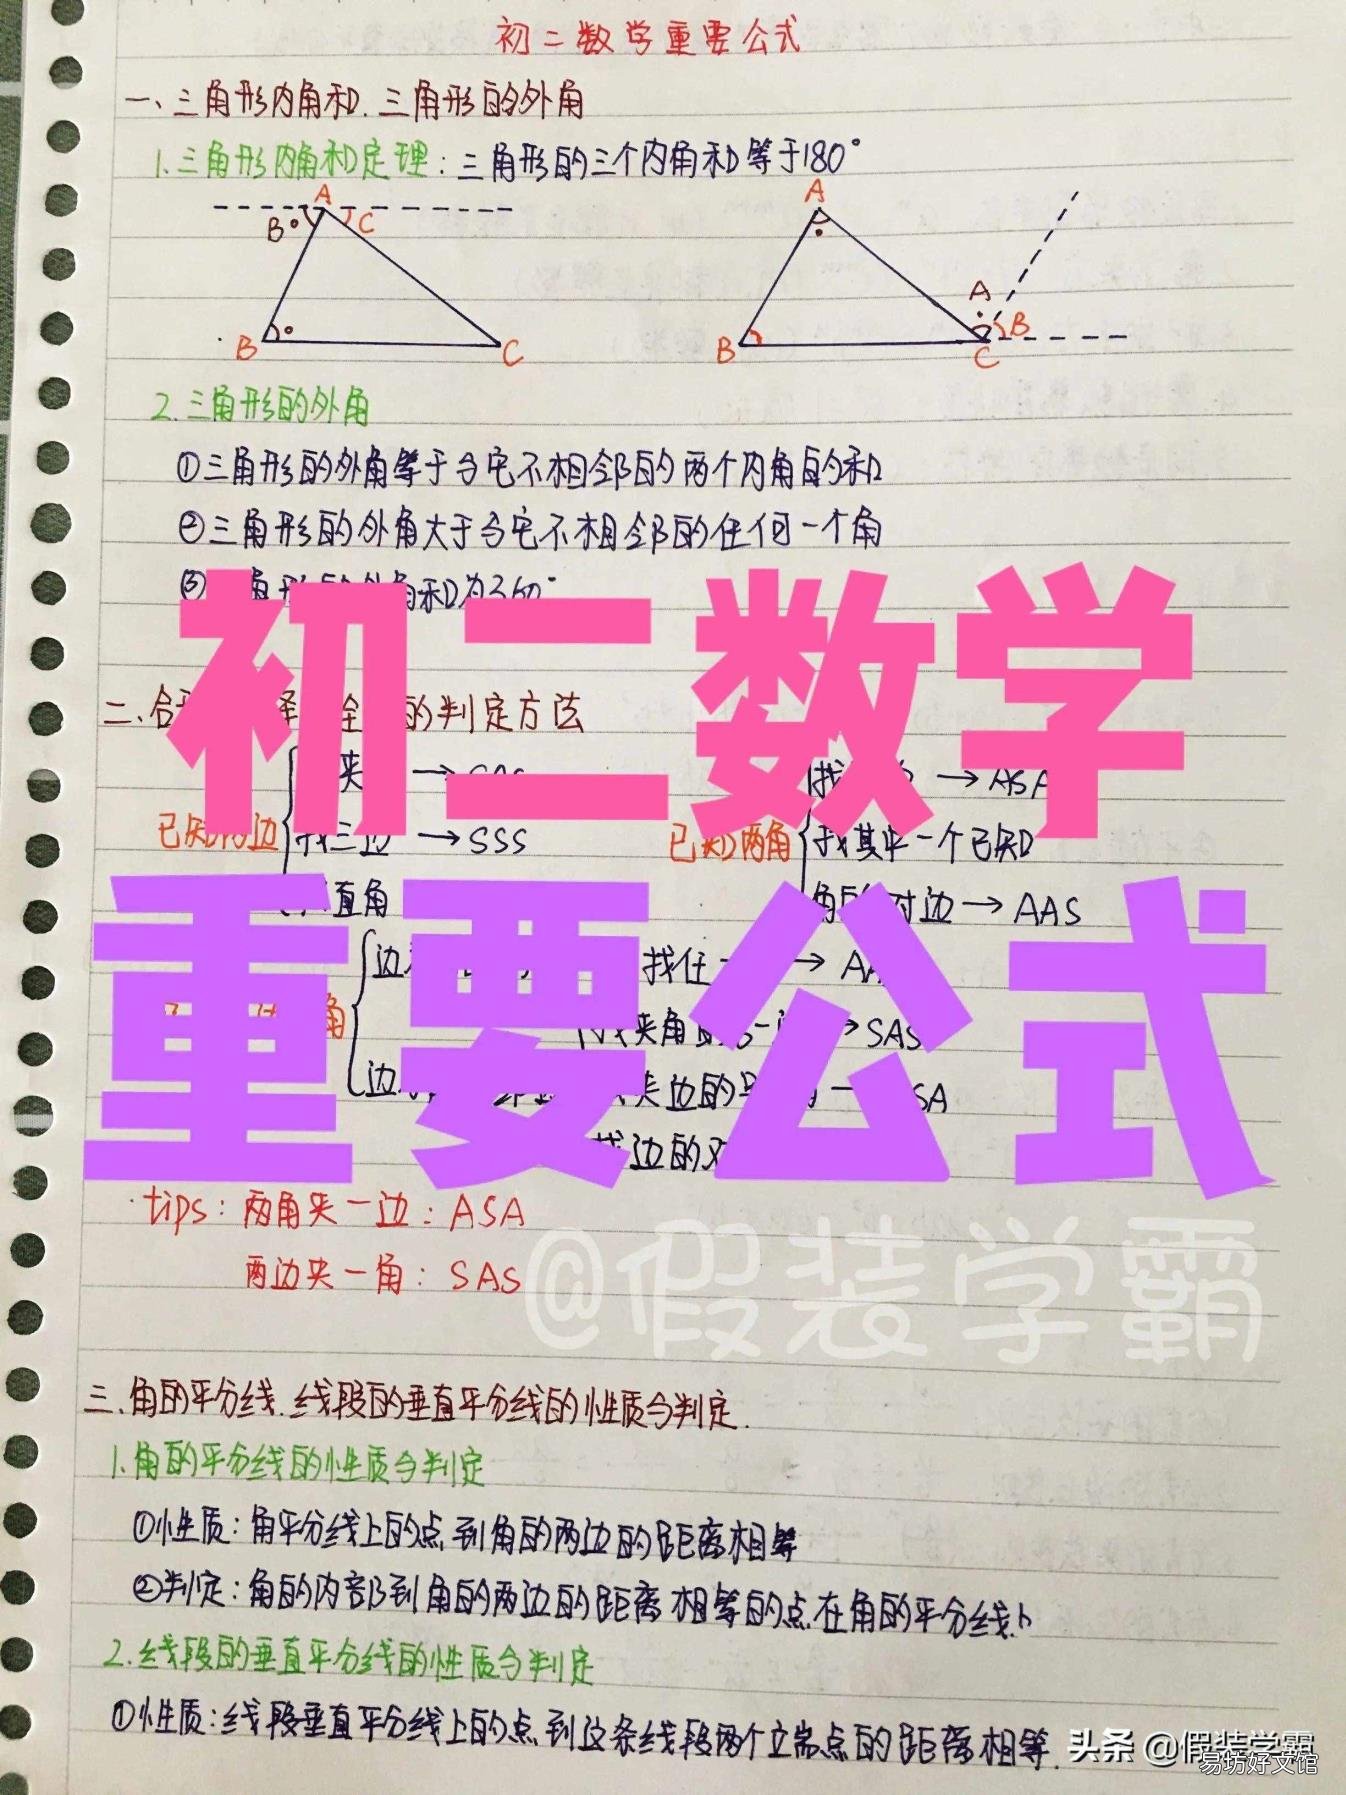 初二数学重要公式
一、三角形内角和、三角形的外角
1.三角形内角和定理：三角形的三个内角和等于180°
A A
B C
A
B B
B C B C
2.三角形的外角
①三角形的外角等于与它不相邻的两个内角的和
②三角形的外角大于与它不相邻的任何一个角
③角形的外角和为360°
初二数学
二、的判定方法
夹 → SAS
找 → ASA
已知两边 找三边 → SSS
已知两角 找其中一个已知
直角
角的对边 → AAS
重要公式
边 找任 → AA
角 找夹角的另一 → SAS
边 夹边的 → SA
找边的对
tips：两角夹一边：ASA
两边夹一角：SAS
@假装学霸
三、角的平分线、线段的垂直平分线的性质与判定.
1.角的平分线的性质与判定
①性质：角平分线上的点到角的两边的距离相等
②判定：角的内部到角的两边的距离相等的点在角的平分线上
2.线段的垂直平分线的性质与判定
①性质：线段垂直平分线上的点到这条线段两个端点的距离相等.
头条 @假装学霸
易坊好文馆